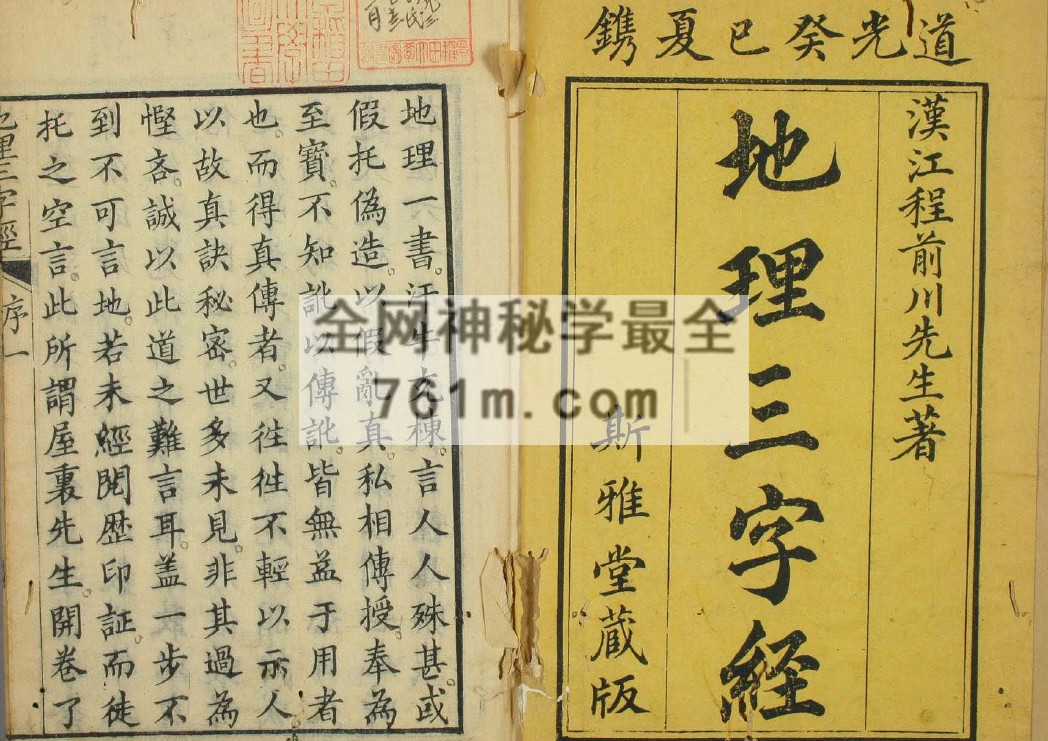 道光癸巳夏鐫
漢江程前川先生著
地理三字經
斯雅堂藏版
地理一書。汗牛充棟。言人人殊甚或
假托偽造。以假亂真。私相傳授。奉為
至寶。不知訛以傳訛。皆無益于用者
也。而得真傳者。又徃徃不輕以示人
以故真訣秘密。世多未見。非其過為
慳吝。誠以此道之難言耳。盖一步不
到不可言地。若未經閱歴印証。而徒
托之空言。此所謂屋裏先生。開卷了
地理三字經
序
一
全网神秘学最全
761m.com